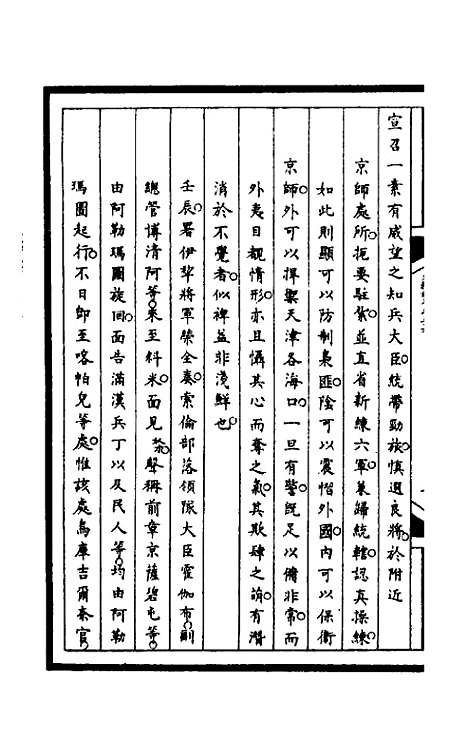 宣召一素有威望之知兵大臣統帶勁旅慎選良將於附近
京師處所扼要駐紮並直省新練六軍兼歸統轄認真操練
如此則顯可以防制梟匪陰可以震慴外國內可以保衛
京師外可以捍禦天津各海口一旦有警既足以備非常而
外夷目覩情形亦且懾其心而奪之氣其欺肆之萌有潛
消於不覺者似裨益非淺鮮也
壬辰署伊犂將軍榮全奏索倫部落領隊大臣霍伽布副
總管博清阿等來至科米面見奴才聲稱前章京薩碧屯等
由阿勒瑪圖旋回面告滿漢兵丁以及民人等均由阿勒
瑪圖起行不日即至喀帕兒等處惟該處烏庫吉爾奈官